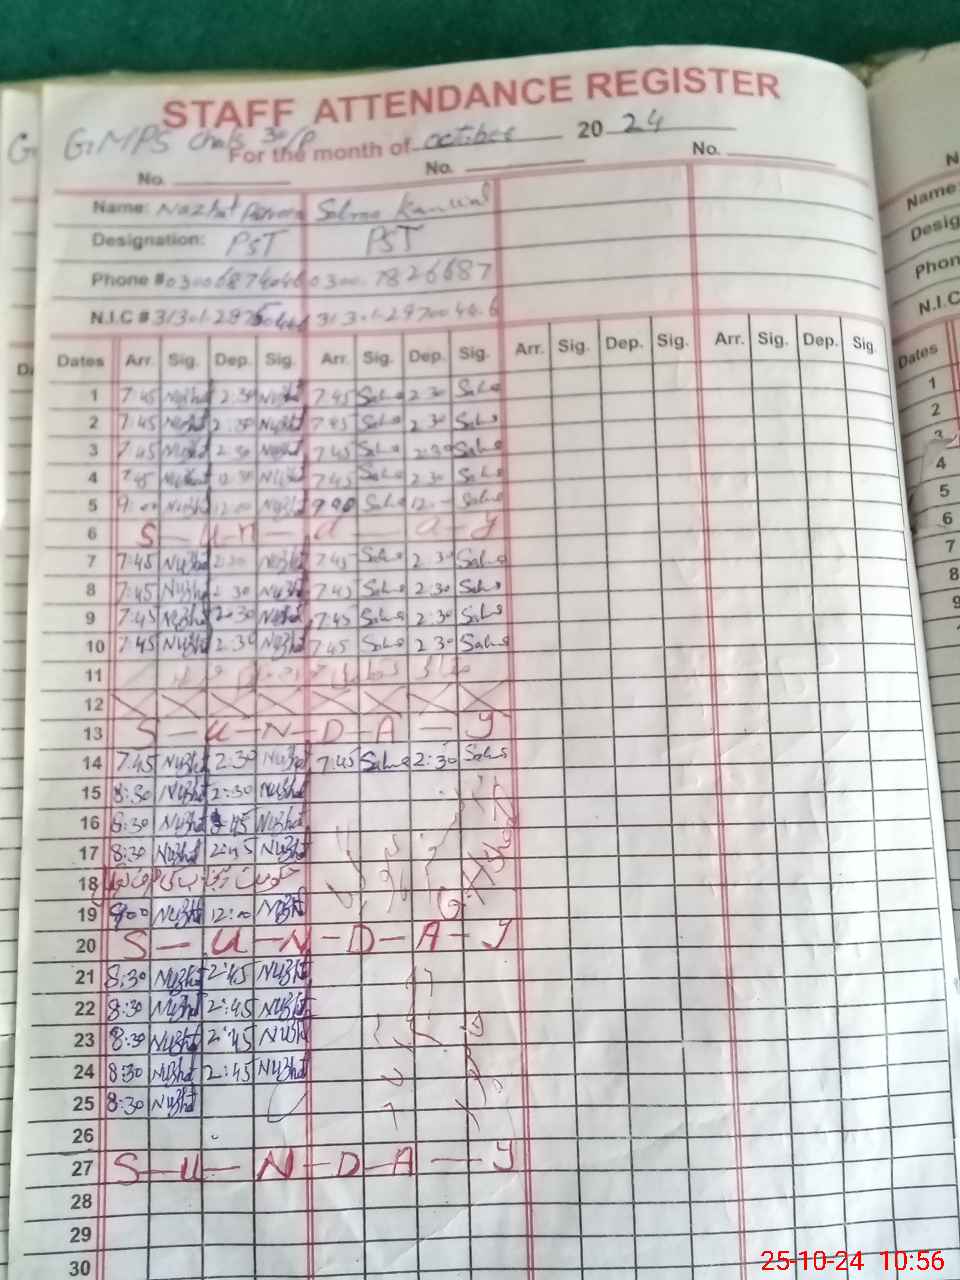 STAFF ATTENDANCE REGISTER
GMPS Chak 30/P
For the month of october 20 24
No. No. No.
Name: Nazhat Parveen Salma Kanwal
Designation: PST PST
Phone # 0300 7826687
N.I.C #
Dates Arr. Sig. Dep. Sig. Arr. Sig. Dep. Sig. Arr. Sig. Dep. Sig. Arr. Sig. Dep. Sig.
1 7:45 Nuzhat 2:30 Nuzhat 7:45 Salma 2:30 Salma
2 7:45 Nuzhat 2:30 Nuzhat 7:45 Salma 2:30 Salma
3 7:45 Nuzhat 2:30 Nuzhat 7:45 Salma 2:30 Salma
4 7:45 Nuzhat 12:30 Nuzhat 7:45 Salma 2:30 Salma
5 9:00 Nuzhat 12:00 Nuzhat 9:00 Salma 12:- Salma
6 S-un-d-a-y
7 7:45 Nuzhat 2:30 Nuzhat 7:45 Salma 2:30 Salma
8 7:45 Nuzhat 2:30 Nuzhat 7:45 Salma 2:30 Salma
9 7:45 Nuzhat 2:30 Nuzhat 7:45 Salma 2:30 Salma
10 7:45 Nuzhat 2:30 Nuzhat 7:45 Salma 2:30 Salma
11
12
13 S-U-N-D-A-Y
14 7:45 Nuzhat 2:30 Nuzhat 7:45 Salma 2:30 Salma
15 8:30 Nuzhat 2:30 Nuzhat
16 8:30 Nuzhat 2:45 Nuzhat
17 8:30 Nuzhat 2:45 Nuzhat
18
19 9:00 Nuzhat 12:00 Nuzhat
20 S-U-N-D-A-Y
21 8:30 Nuzhat 2:45 Nuzhat
22 8:30 Nuzhat 2:45 Nuzhat
23 8:30 Nuzhat 2:45 Nuzhat
24 8:30 Nuzhat 2:45 Nuzhat
25 8:30 Nuzhat
26
27 S-U-N-D-A-Y
28
29
30
N
Name:
Desig
Phon
N.I.C
Dates
1
2
3
4
5
6
7
8
9
25-10-24 10:56